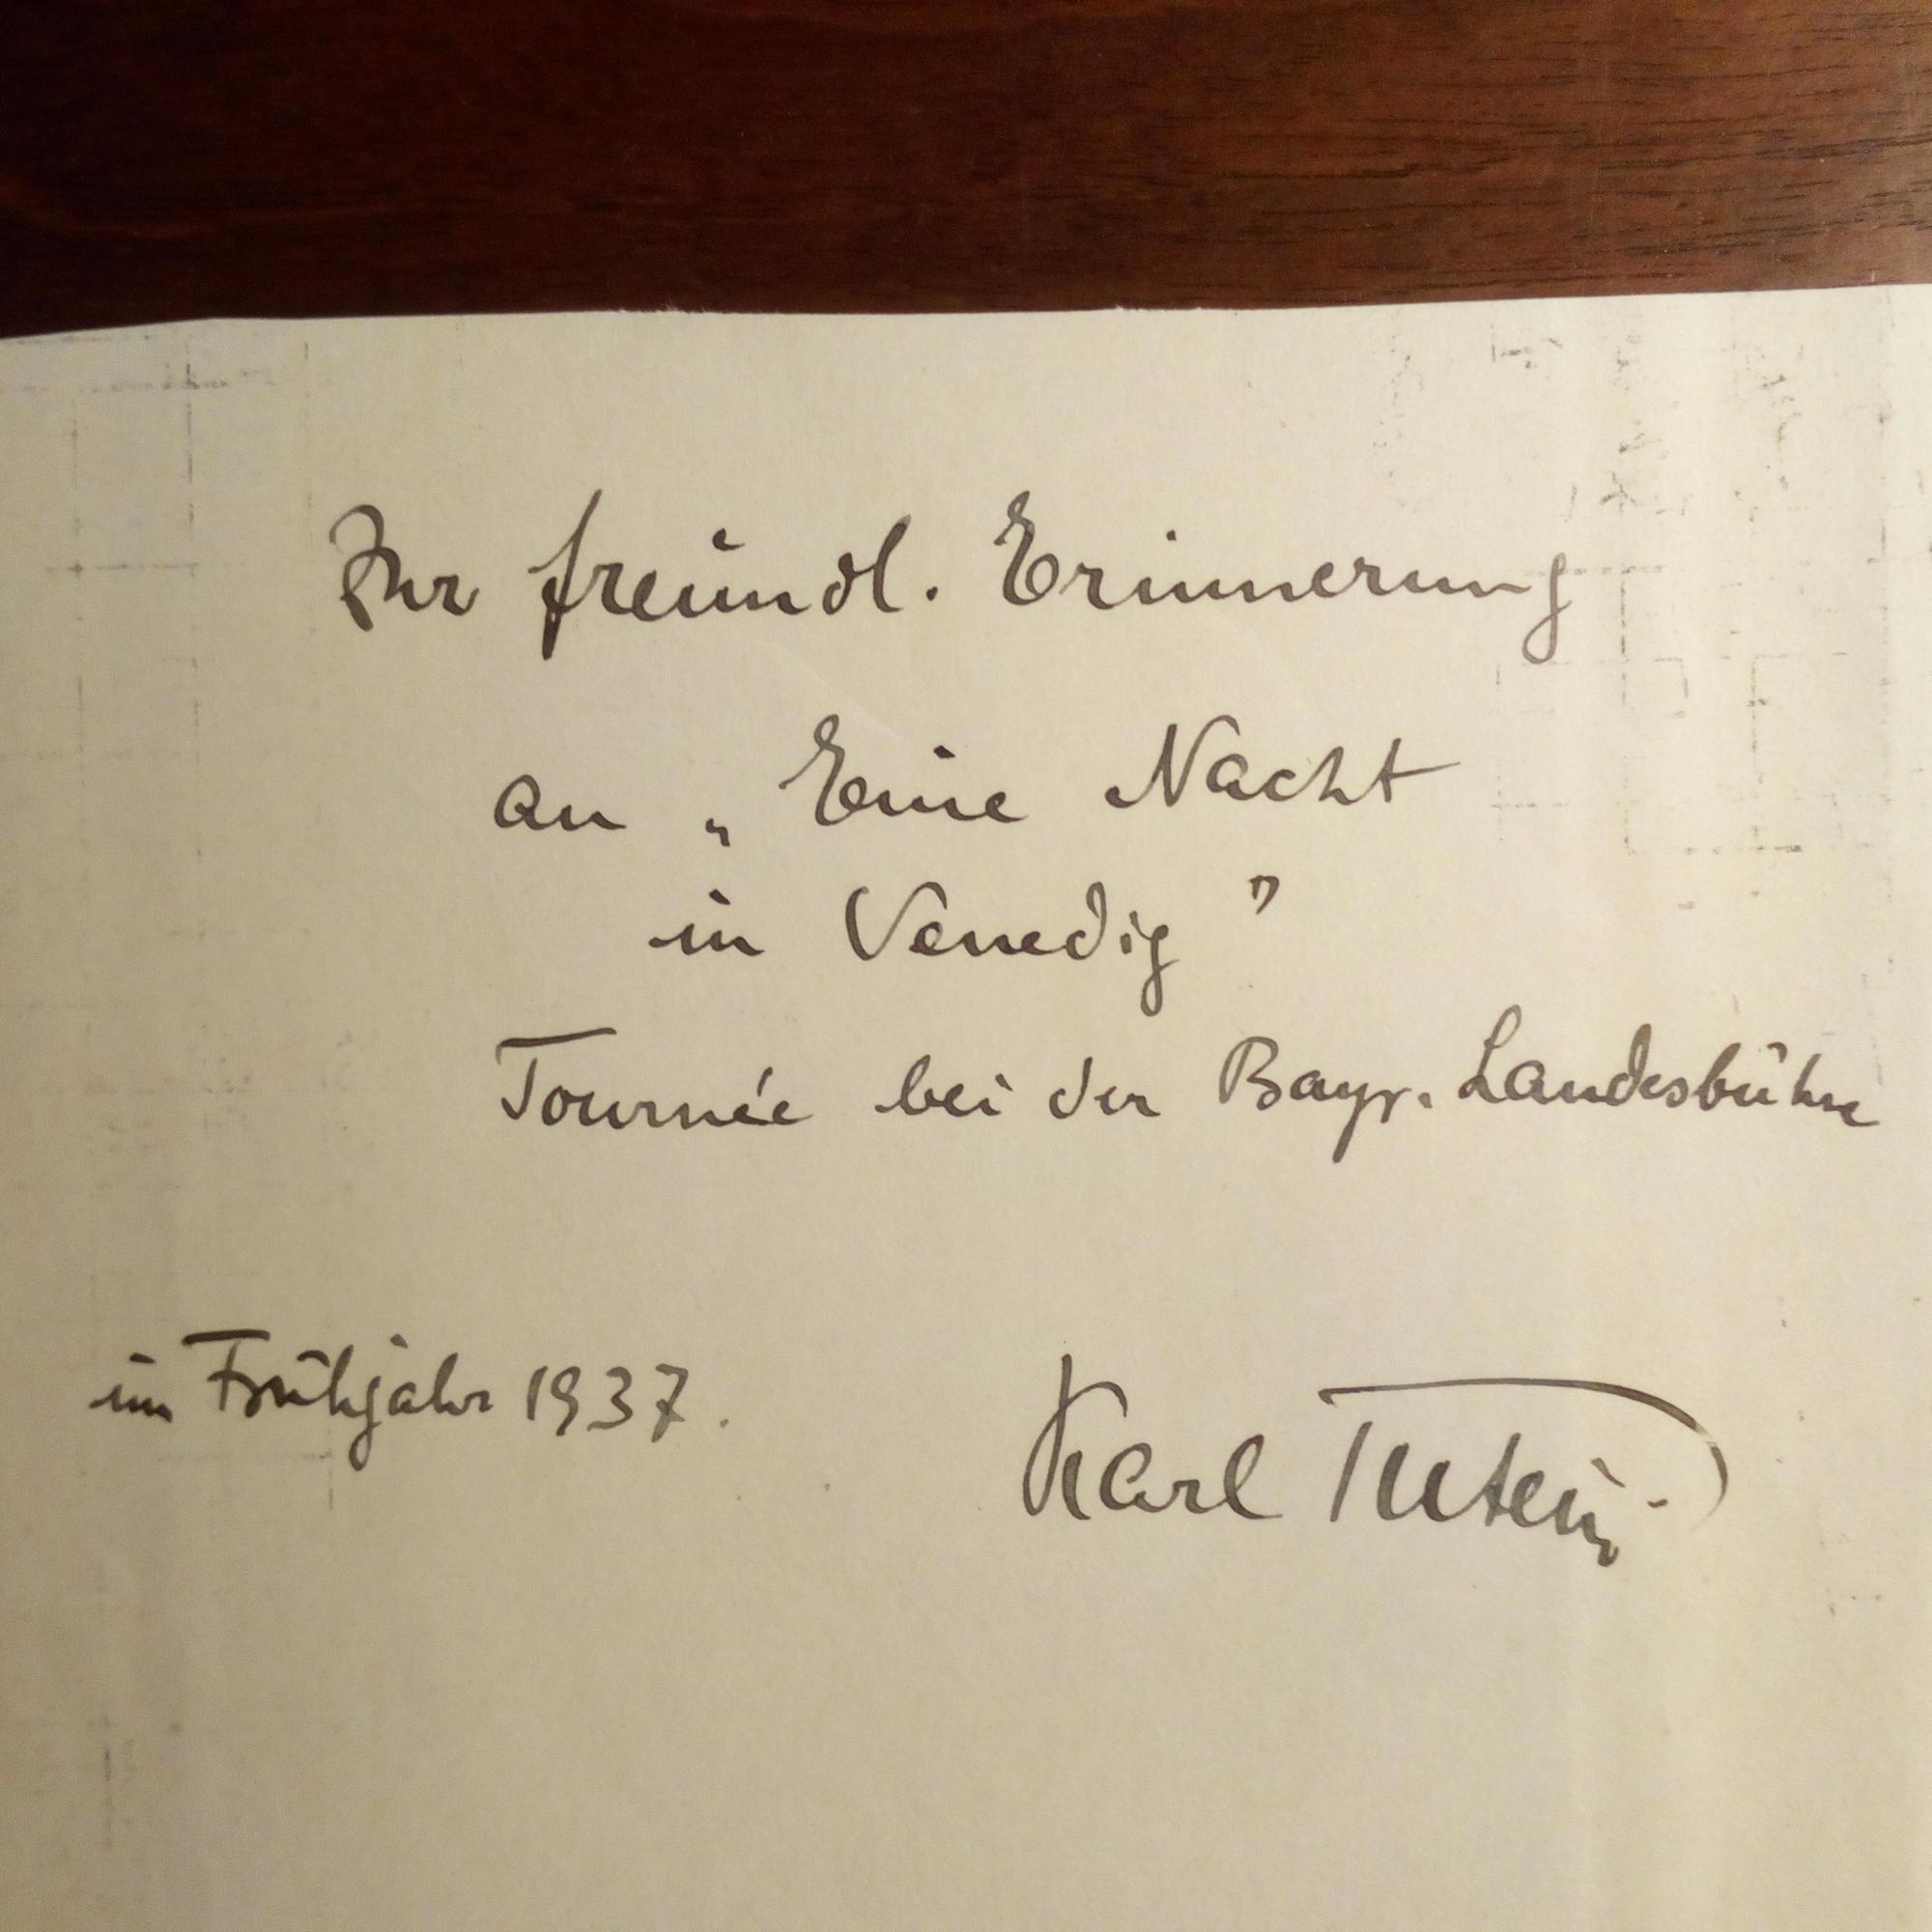 Zur freundl. Erinnerung
an „Eine Nacht
in Venedig"
Tournée bei der Bayr. Landesbühne
im Frühjahr 1937.
Karl Tutein.